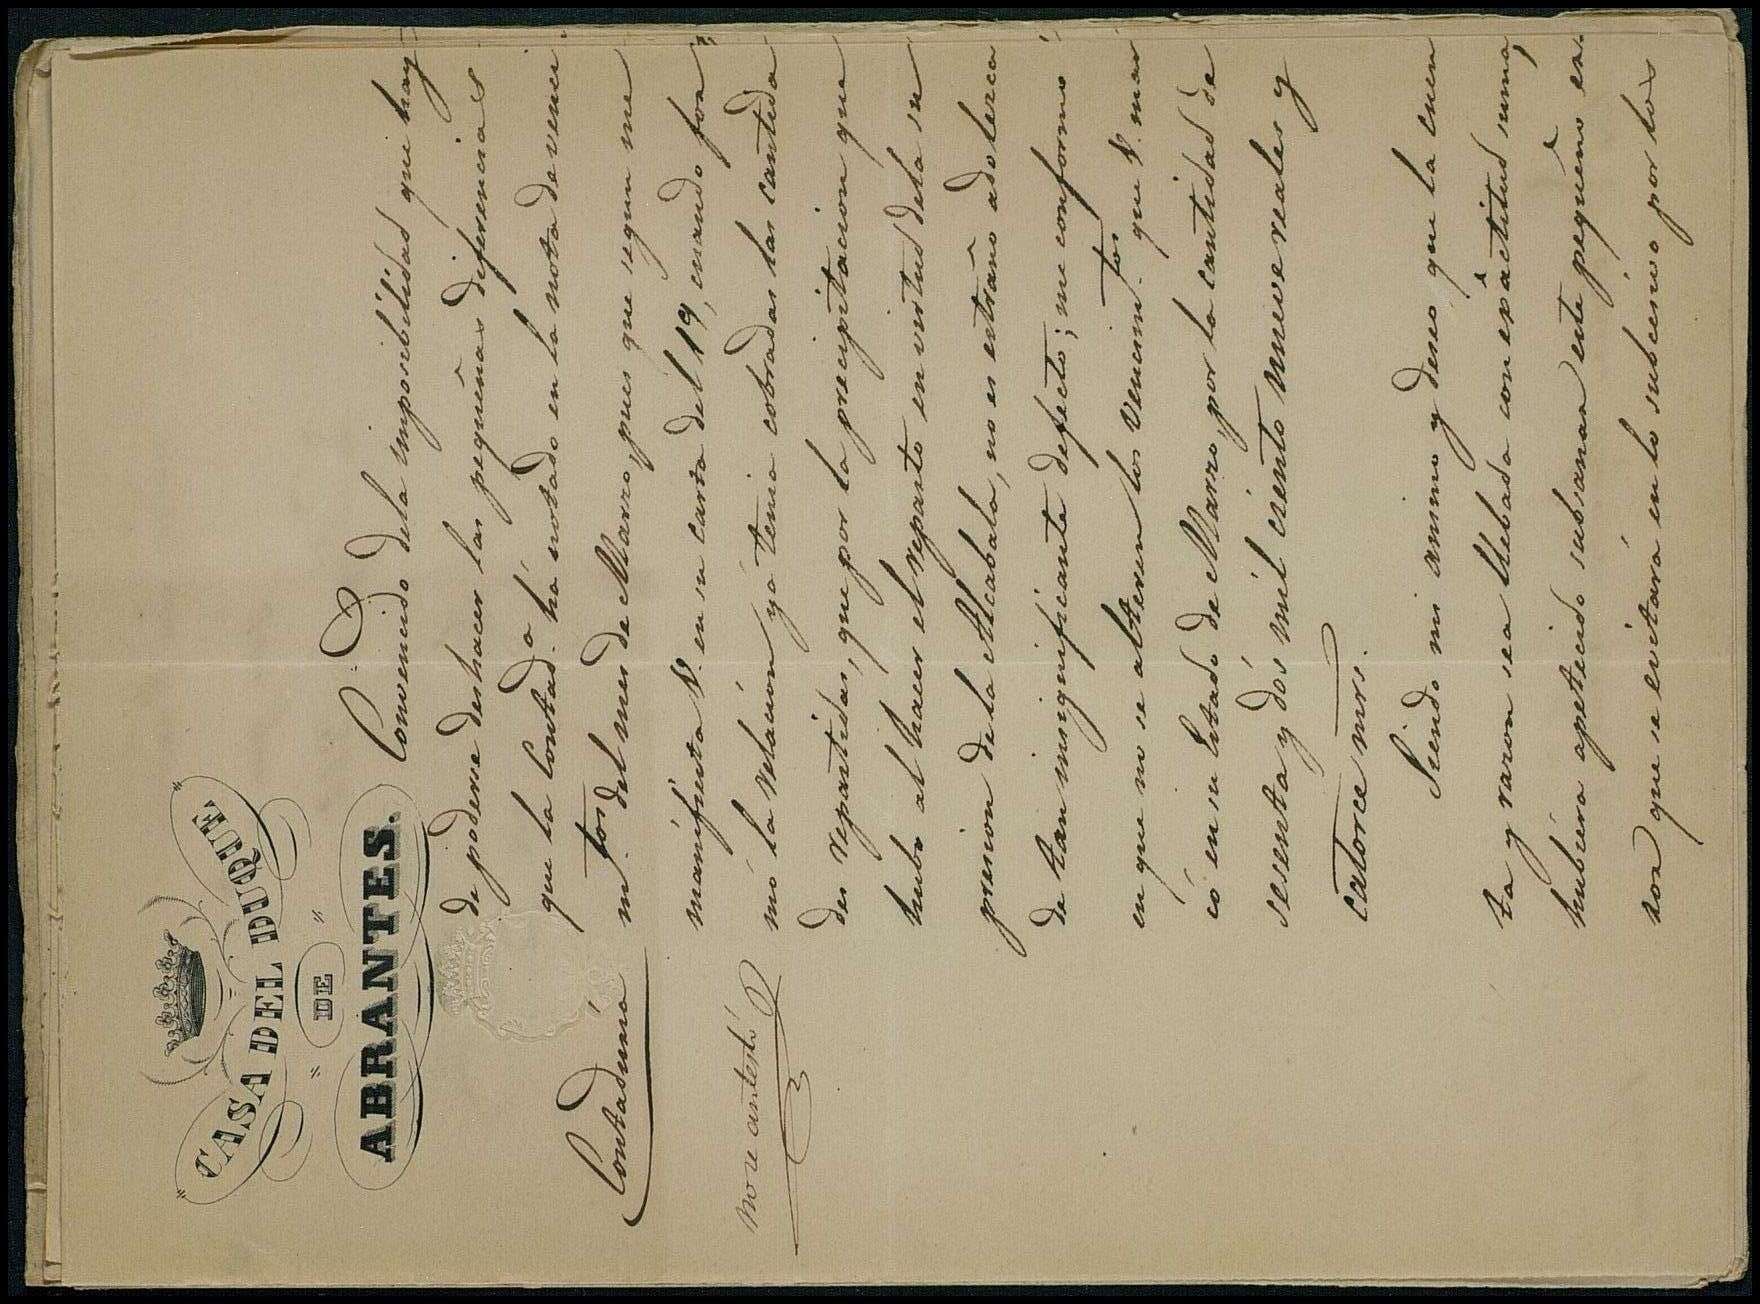 CASA DEL DUQUE
" DE "
ABRANTES.
Contaduría
no se contestó
Convencido dela imposibilidad que hay
de poderse deshacer las pequeñas diferencias
que la Contad.ª há notado en la nota de venci
m.tos del mes de Marzo, pues que segun me
manifiesta V. en su carta del 19, cuando for
mó la relacion ya tenia cobradas las cantida
des repartidas, que por la precipitacion que
hubo al hacer el reparto en virtud dela su
presion dela Alcabala, no es estraño adolezca
de tan insignificante defecto; me conformo
en que no se alteren los Vencim.tos que V. mar
có en su Estado de Marzo, por la cantidad de
sesenta y dós mil ciento nueve reales y
catorce mrs.
Siendo mi animo y deseo que la cuen
ta y razon sea llebada con exactitud suma,
hubiera apetecido subsanar este pequeño er
ror que se evitará en lo subcesivo por los